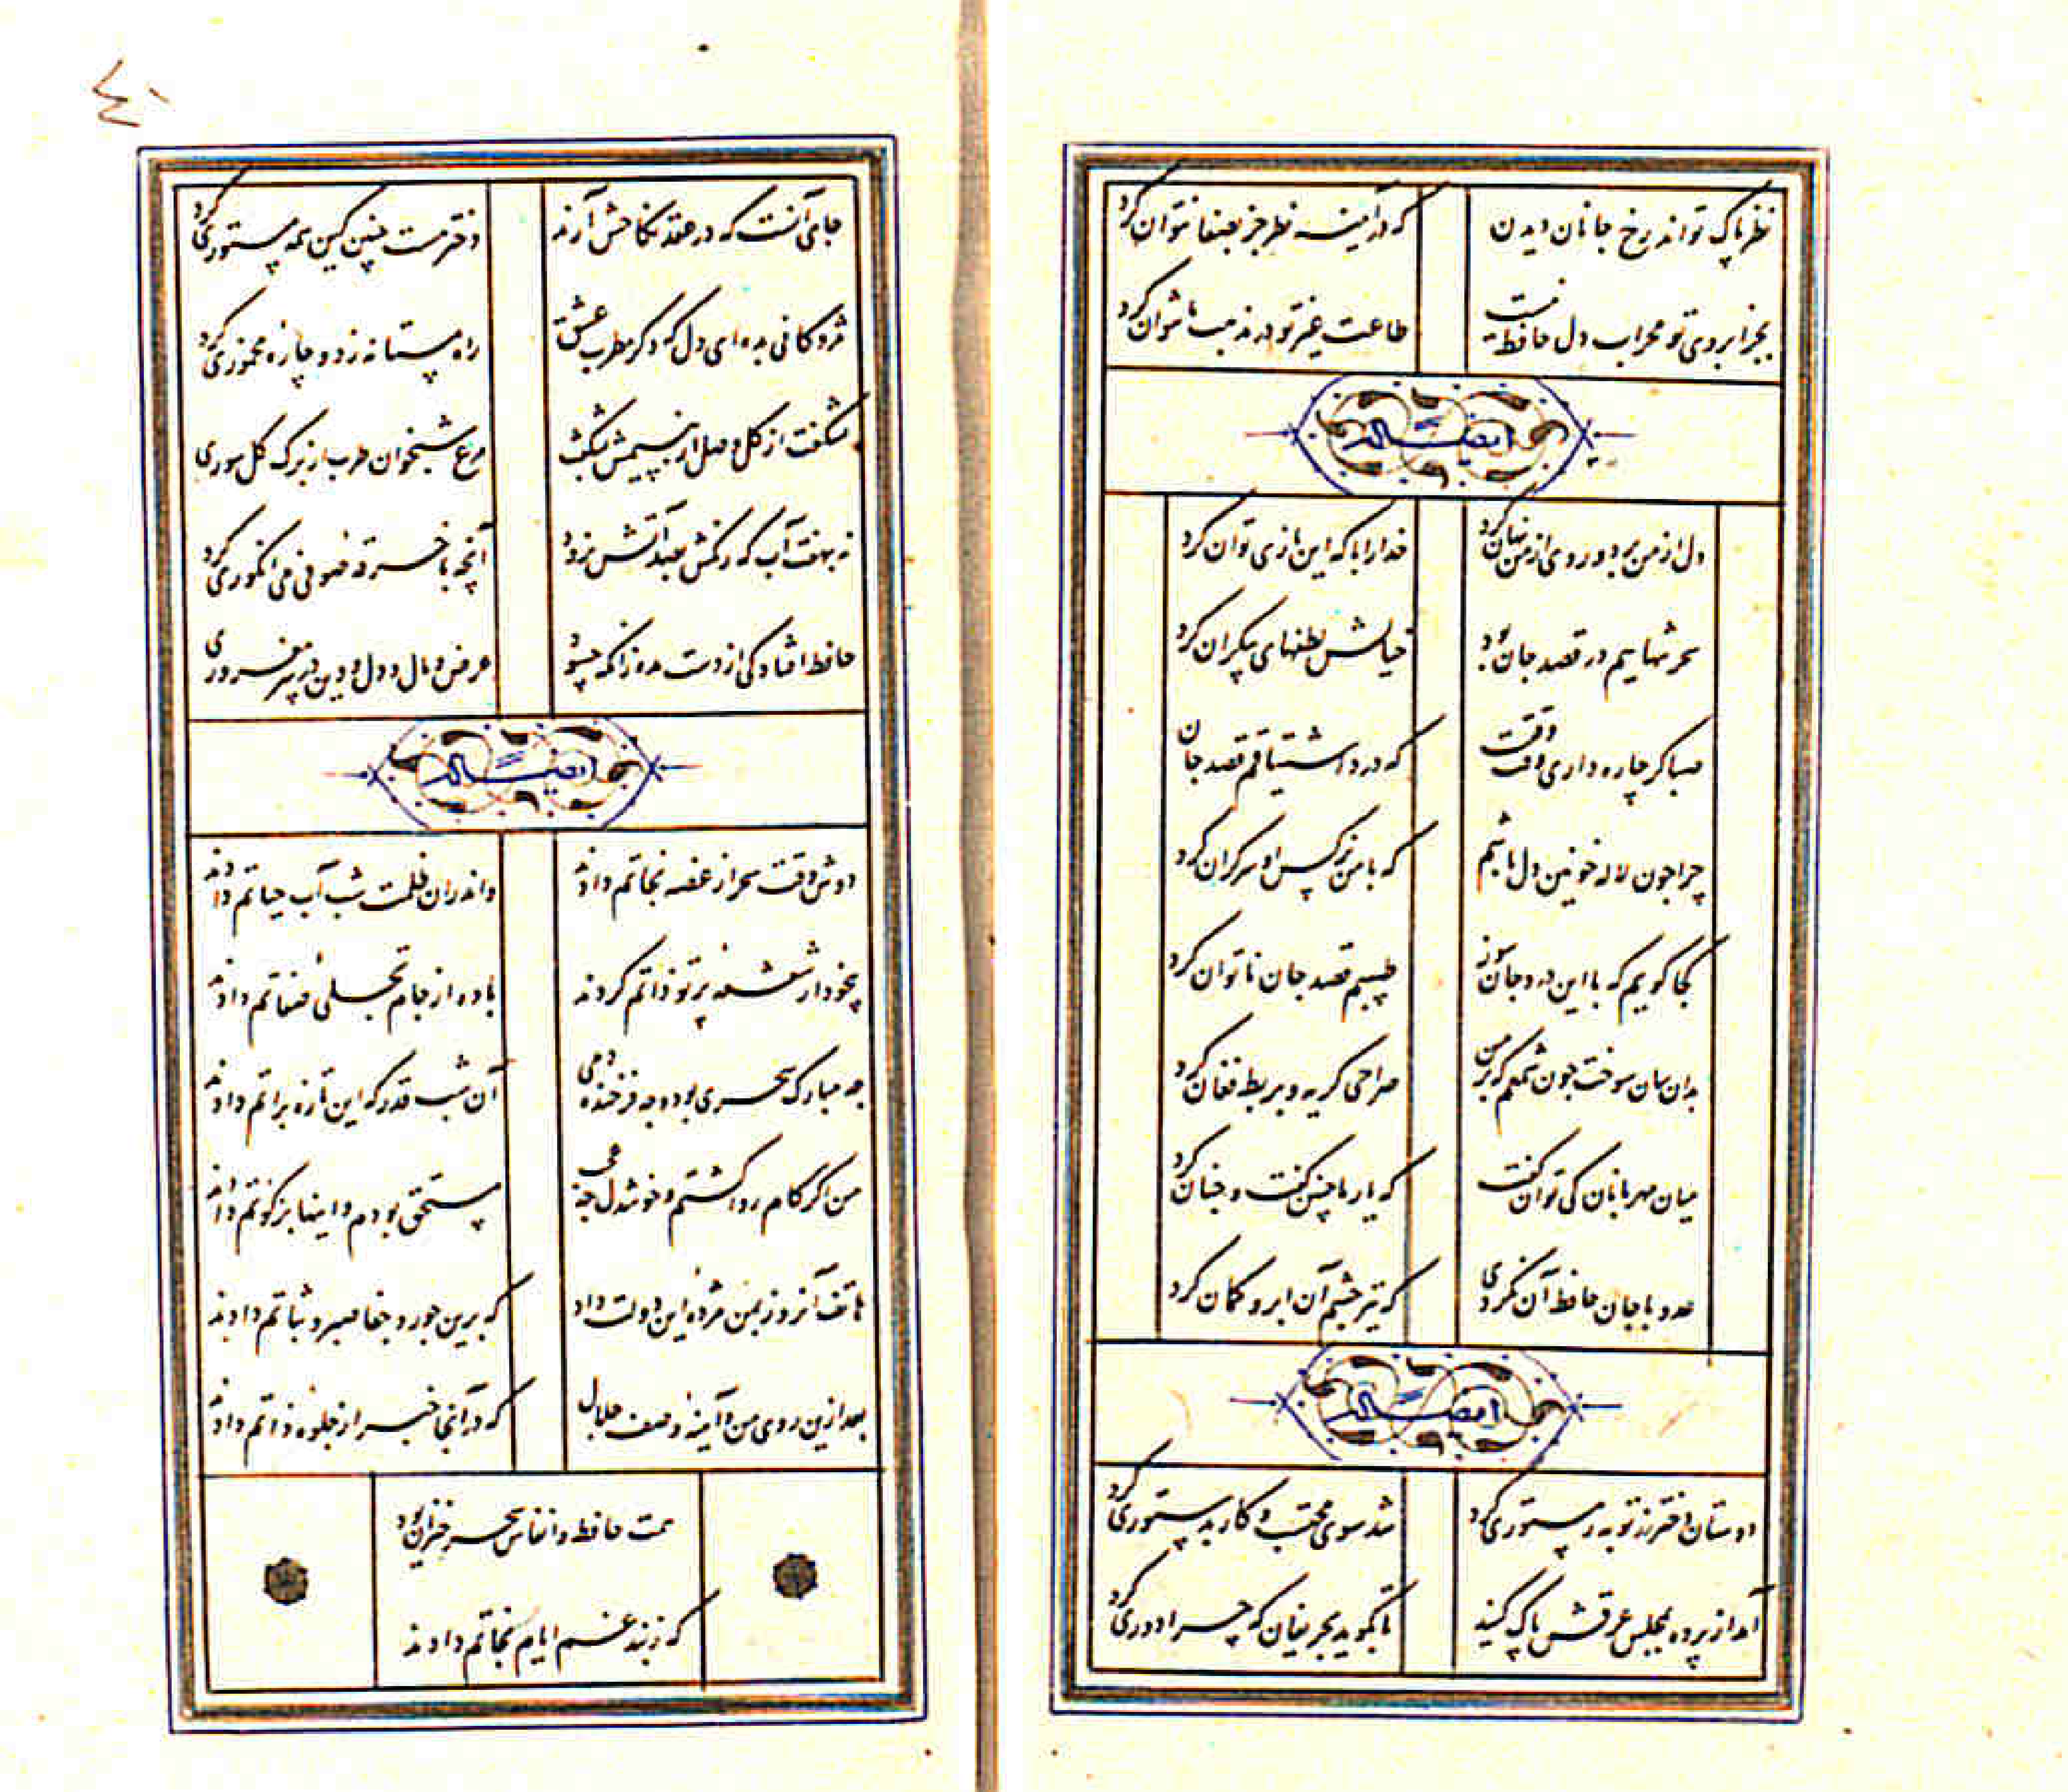 نظر پاک تواند رخ جانان دیدن
که در آینه نظر جز بصفا نتوان کرد
بجز ابروی تو محراب دل حافظ نیست
طاعت غیر تو در مذهب ما نتوان کرد
ایضاً له
دل از من برد و روی از من نهان کرد
خدا را با که این بازی توان کرد
سحر تنهاییم در قصد جان بود
خیالش لطفهای بیکران کرد
صبا گر چاره داری وقت وقتست
که درد اشتیاقم قصد جان
چرا چون لاله خونین دل نباشم
که با من نرگس او سرگران کرد
کجا گویم که با این درد جان سوز
طبیبم قصد جان ناتوان کرد
بدان سان سوخت چون شمعم که بر من
صراحی گریه و بربط فغان کرد
میان مهربانان کی توان گفت
که یار ما چنین گفت و چنان کرد
عدو با جان حافظ آن نکردی
که تیر چشم آن ابرو کمان کرد
ایضاً له
دوستان دختر رز توبه ز مستوری کرد
شد سوی محتسب و کار بدستوری کرد
آمد از پرده بمجلس عرقش پاک کنید
تا بگوید بحریفان که چرا دوری کرد
٤١
جای آنست که در عقد نکاحش آرند
دختر مست چنین کین همه مستوری کرد
مژدگانی بده ای دل که دگر مطرب عشق
راه مستانه زد و چاره مخموری کرد
نشکفت از گل وصل از نسیمش بشکفت
مرغ شبخوان طرب از برگ گل سوری
نه بهفت آب که رنگش بصد آتش نرود
آنچه با خرقه صوفی می انگوری کرد
حافظ افتادگی از دست مده زانکه حسود
عرض و مال و دل و دین در سر مغروری
ایضاً له
دوش وقت سحر از غصه نجاتم دادند
واندران ظلمت شب آب حیاتم دادند
بیخود از شعشعه پرتو ذاتم کردند
باده از جام تجلی صفاتم دادند
چه مبارک سحری بود و چه فرخنده دمی
آن شب قدر که این تازه براتم دادند
من اگر کامروا گشتم و خوشدل چه عجب
مستحق بودم و اینها بزکوتم دادند
هاتف آنروز بمن مژدهٔ این دولت داد
که برین جور و جفا صبر و ثباتم دادند
بعد ازین روی من و آینهٔ وصف جلال
که در آنجا خبر از جلوه ذاتم دادند
همت حافظ و انفاس سحرخیزان بود
که ز بند غم ایام نجاتم دادند